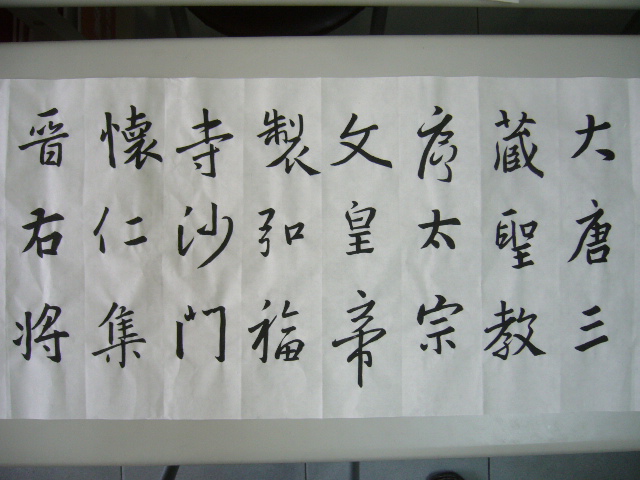 大唐三
藏聖教
序太宗
文皇帝
製弘福
寺沙門
懷仁集
晉右將